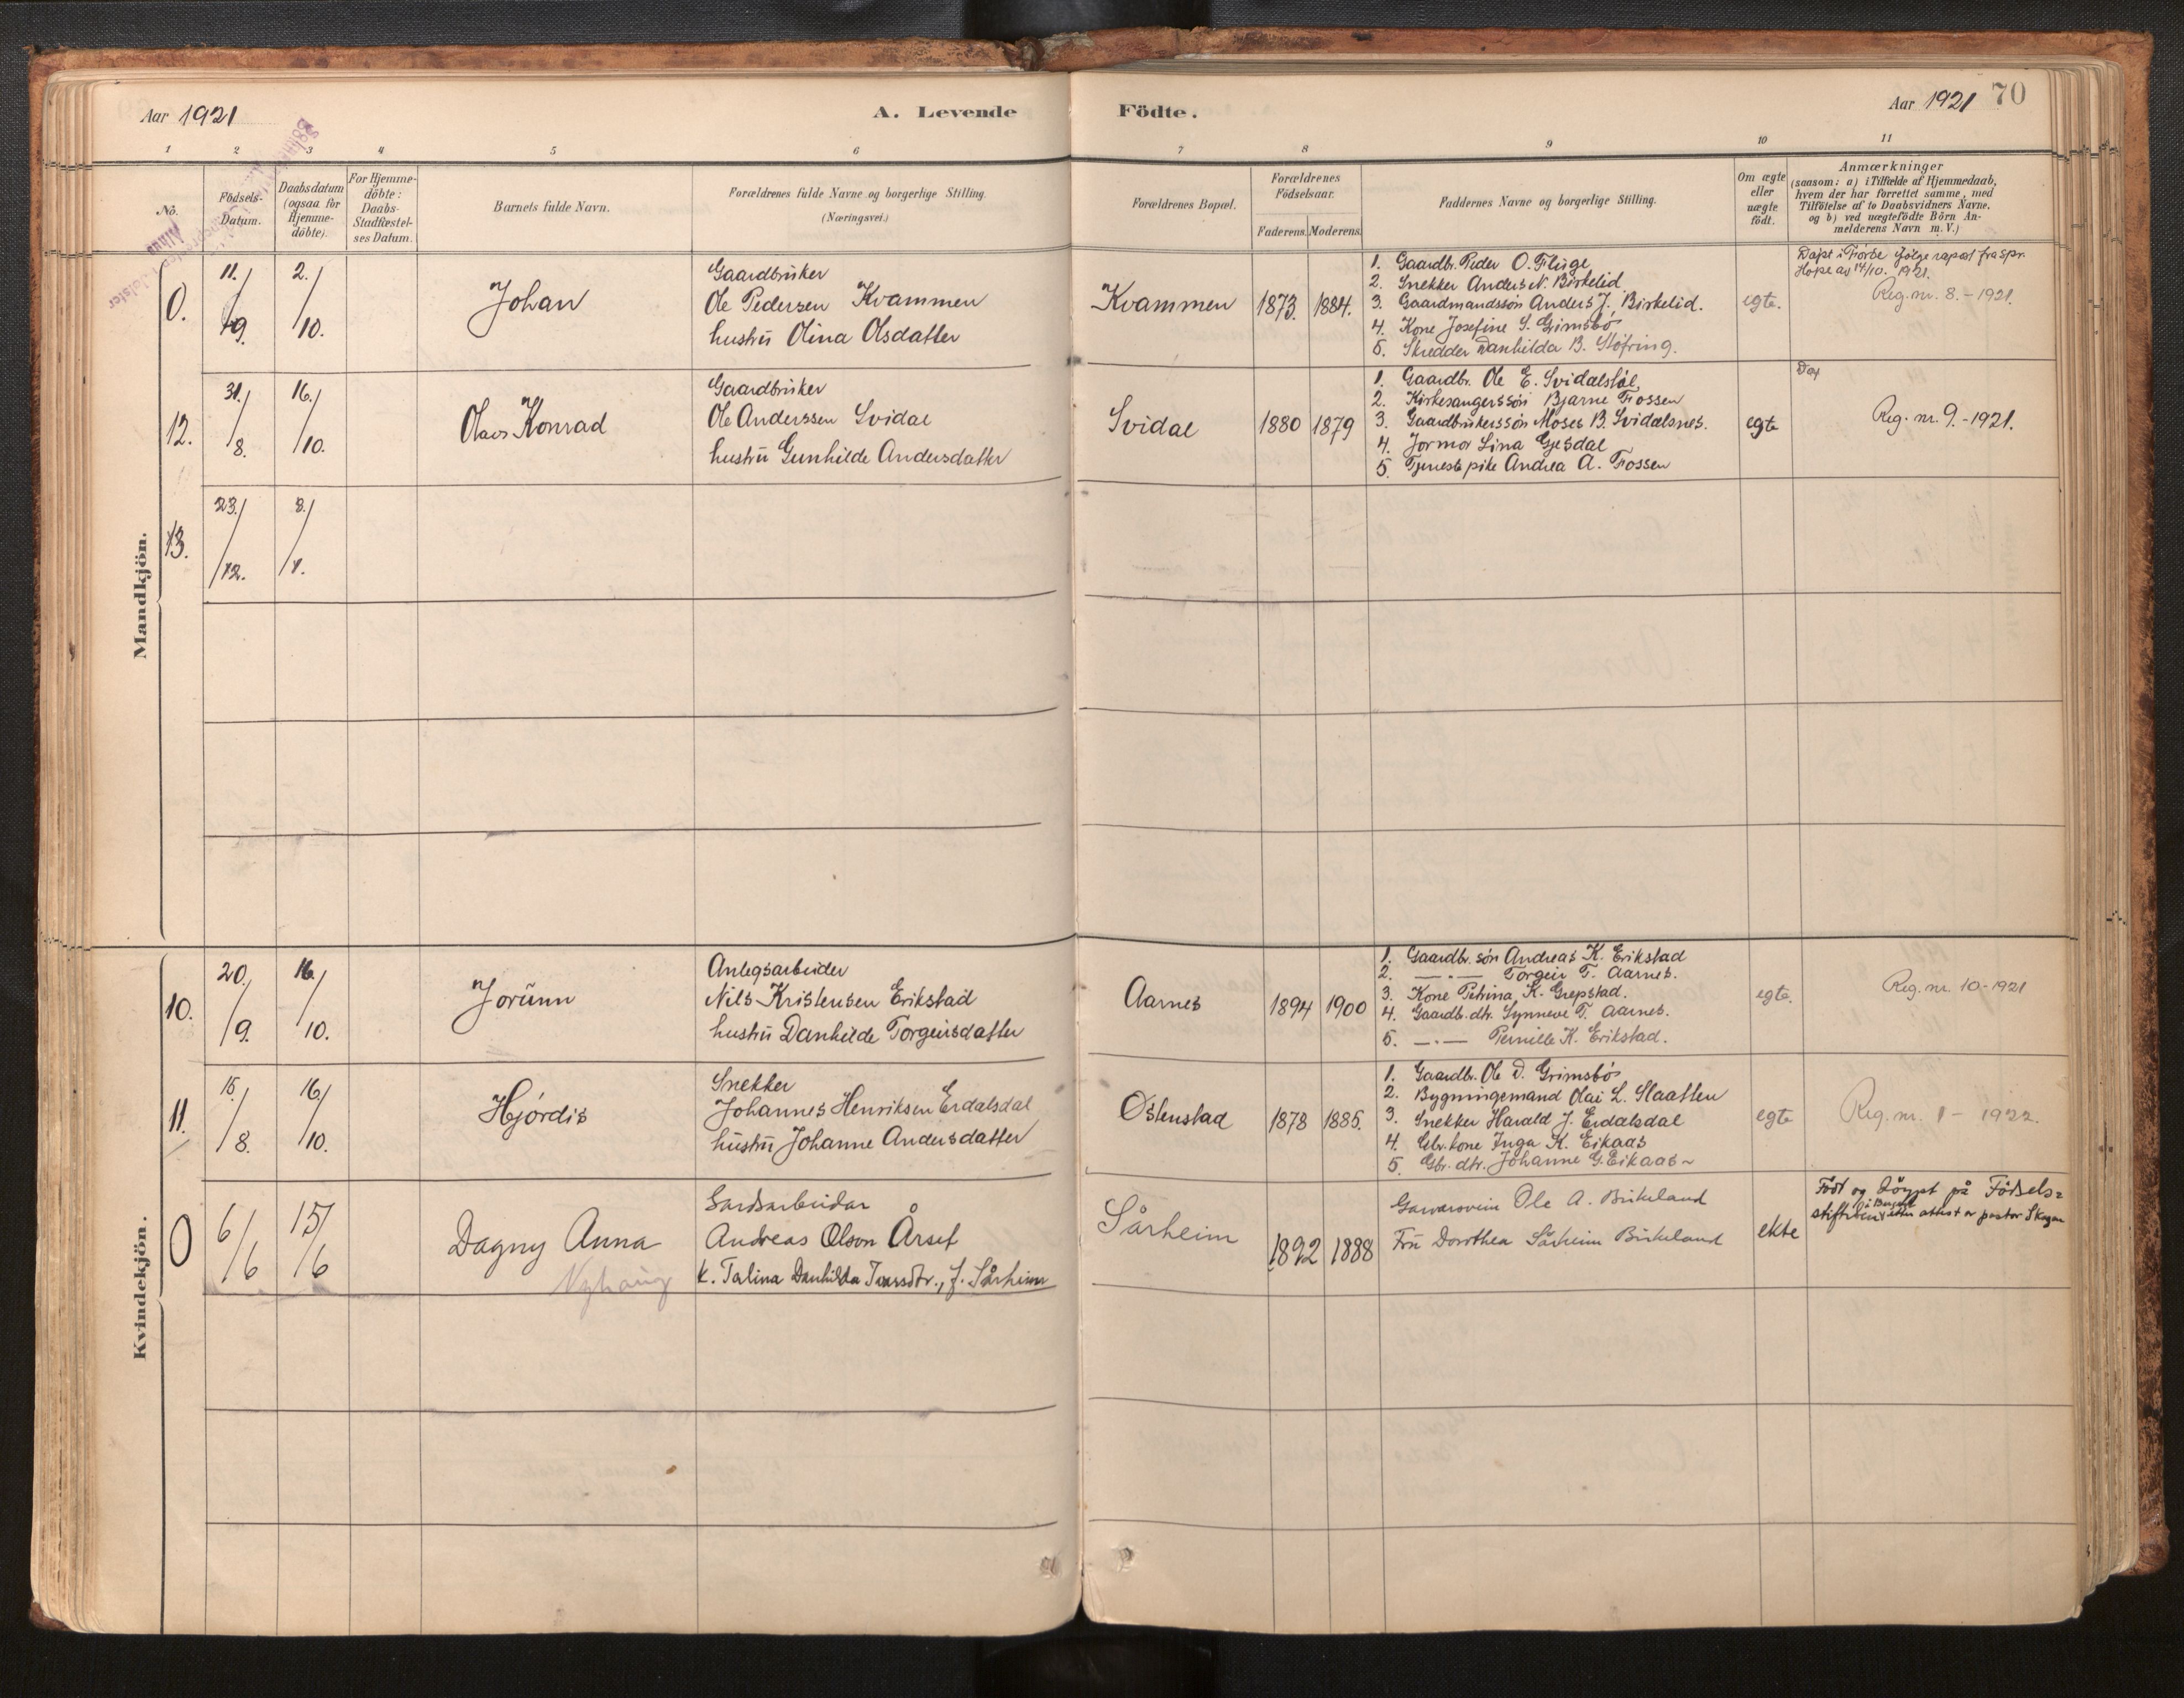 Aar 1921
A. Levende
Födte.
Aar 1921
70
1 2 3 4 5 6 7 8 9 10 11
No.
Födsels-
Datum.
Daabsdatum
(ogsaa for
Hjemme-
döbte).
For Hjemme-
döbte:
Daabs-
Stadfæstel-
ses Datum.
Barnets fulde Navn.
Forældrenes fulde Navne og borgerlige Stilling.
(Næringsvei.)
Forældrenes Bopæl.
Forældrenes
Födselsaar.
Faderens. Moderens.
Faddernes Navne og borgerlige Stilling.
Om ægte
eller
uægte
födt.
Anmærkninger
(saasom: a) i Tilfælde af Hjemmedaab,
hvem der har forrettet samme, med
Tilföielse af to Daabsvidners Navne,
og b) ved uægtefödte Börn An-
melderens Navn m. V.)
Mandkjön.
0.
11./9.
2./10.
Johan
Gaardbruker
Ole Pedersen Kvammen
hustru Olina Olsdatter
Kvammen
1873. 1884.
1. Gaardbr. Peder O. Fluge
2. Snekker Anders N. Birkelid
3. Gaardmandssøn Anders J. Birkelid.
4. Kone Josefine S. Grimsbø
5. Skredder Danhilda B. Støfring.
egte.
Døpt i Førde følge rapport fra spr.
Hope av 14/10. 1921.
Reg. nr. 8. - 1921.
12.
31./8.
16./10.
Olav Konrad
Gaardbruker
Ole Anderssen Svidal
hustru Gunhilde Andersdatter
Svidal
1880 1879
1. Gaardbr. Ole E. Svidalstøl
2. Kirkesangerssøn Bjarne Fossen
3. Gaardbrukerssøn Moses B. Svidalsnes.
4. Jormor Lina Gjesdal
5 Tjenestepike Andrea A. Fossen
egte
Døp
Reg. nr. 9. - 1921.
13.
23./12.
8./1.
Kvindekjön.
10.
20./9.
16./10.
Jorunn
Anlegsarbeider
Nils Kristensen Erikstad
hustru Danhilde Torgeirsdatter
Aarnes
1894 1900
1. Gaardbr. søn Andreas K. Erikstad
2. —·— Torgeir T. Aarnes.
3. Kone Petrina K. Grepstad.
4. Gaardb. dtr. Synneve T. Aarnes.
5. —·— Pernille K. Erikstad.
egte.
Reg. nr. 10 - 1921
11.
15./8.
16/10.
Hjørdis
Snekker
Johannes Henriksen Erdalsdal
hustru Johanne Andersdatter
Østenstad
1878 1885.
1. Gaardbr. Ole D. Grimsbø
2. Bygningsmand Olai L. Slaatten
3. Snekker Harald J. Erdalsdal
4. Gbr. kone Inga K. Eikaas
5. Gbr. dtr. Johanne G. Eikaas ~
egte
Reg. nr. 1 - 1922.
0
6/6
15/6
Dagny Anna
Nyhaug
Gardsarbeidar
Andreas Olson Årset
k. Talina Danhilda Ivarsdtr., f. Sårheim
Sårheim
1892 1888
Garvarsvein Ole A. Birkeland
Fru Dorothea Sårheim Birkeland
ekte
Født og døypt på Fødsels=
stiftelsen i Bergen etter attest av pastor Skagen